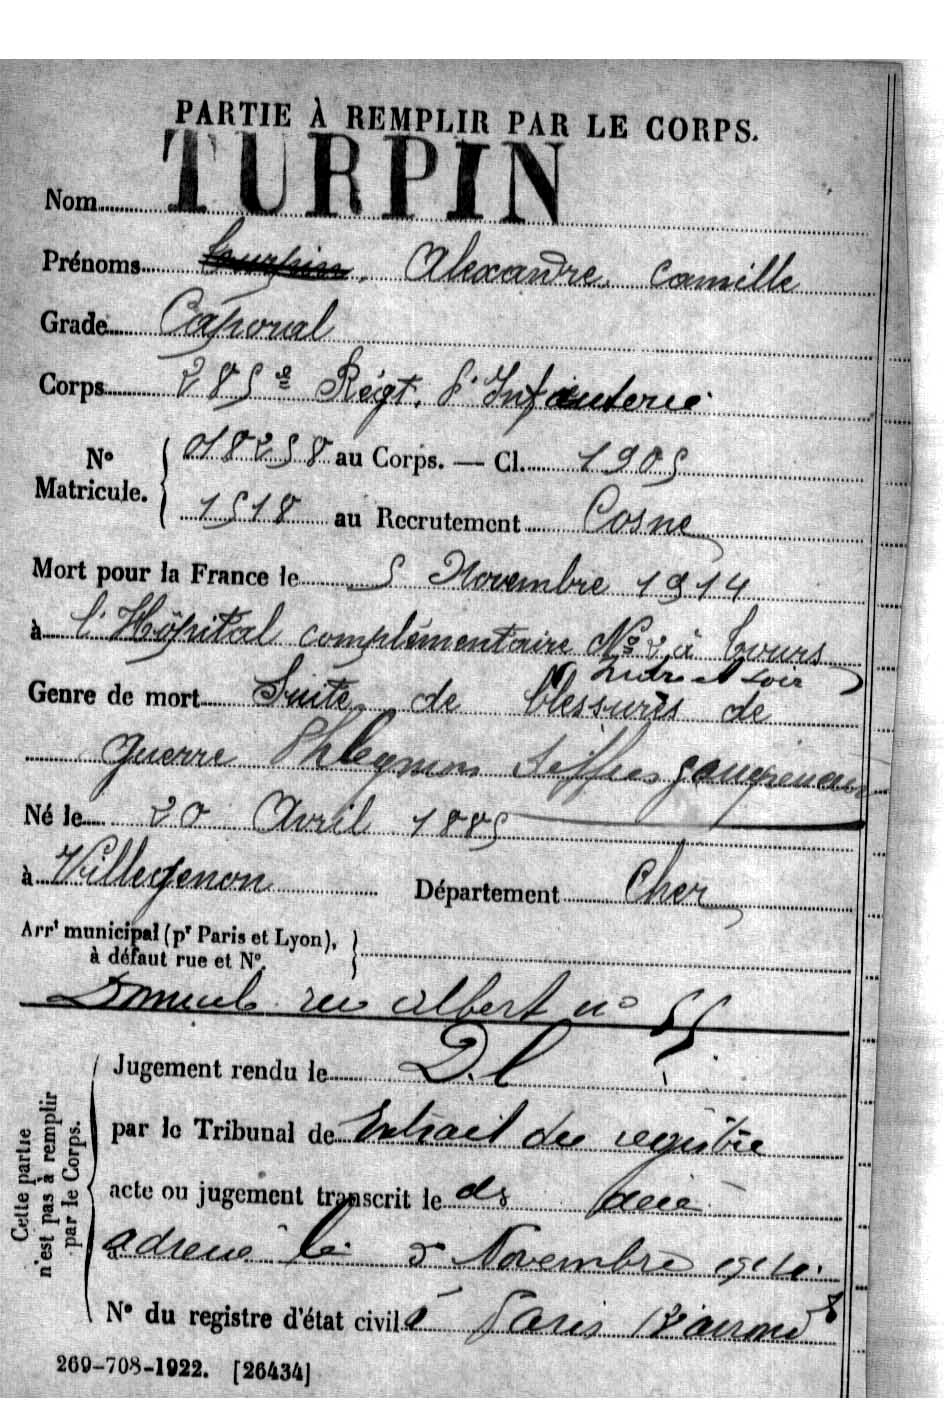 PARTIE À REMPLIR PAR LE CORPS.
Nom TURPIN
Prénoms Tourpin, Alexandre, Camille
Grade Caporal
Corps 285e Régt. d'Infanterie
No Matricule. { 018258 au Corps. — Cl. 1905
1518 au Recrutement Cosne
Mort pour la France le 5 Novembre 1914
à l'Hôpital complémentaire No 2 à Tours
Indre et Loir
Genre de mort Suite de blessures de
guerre Phlegmon diffus gangreneux
Né le 20 Avril 1885
à Villegenon Département Cher
Arrt municipal (pr Paris et Lyon), à défaut rue et No. }
rue Albert no 55
Jugement rendu le D.C
par le Tribunal de Extrait du registre
acte ou jugement transcrit le ds
à adressé le 2 Novembre 1914.
No du registre d'état civil à Paris 13 arrond
Cette partie n'est pas à remplir par le Corps.
269-708-1922. [26434]